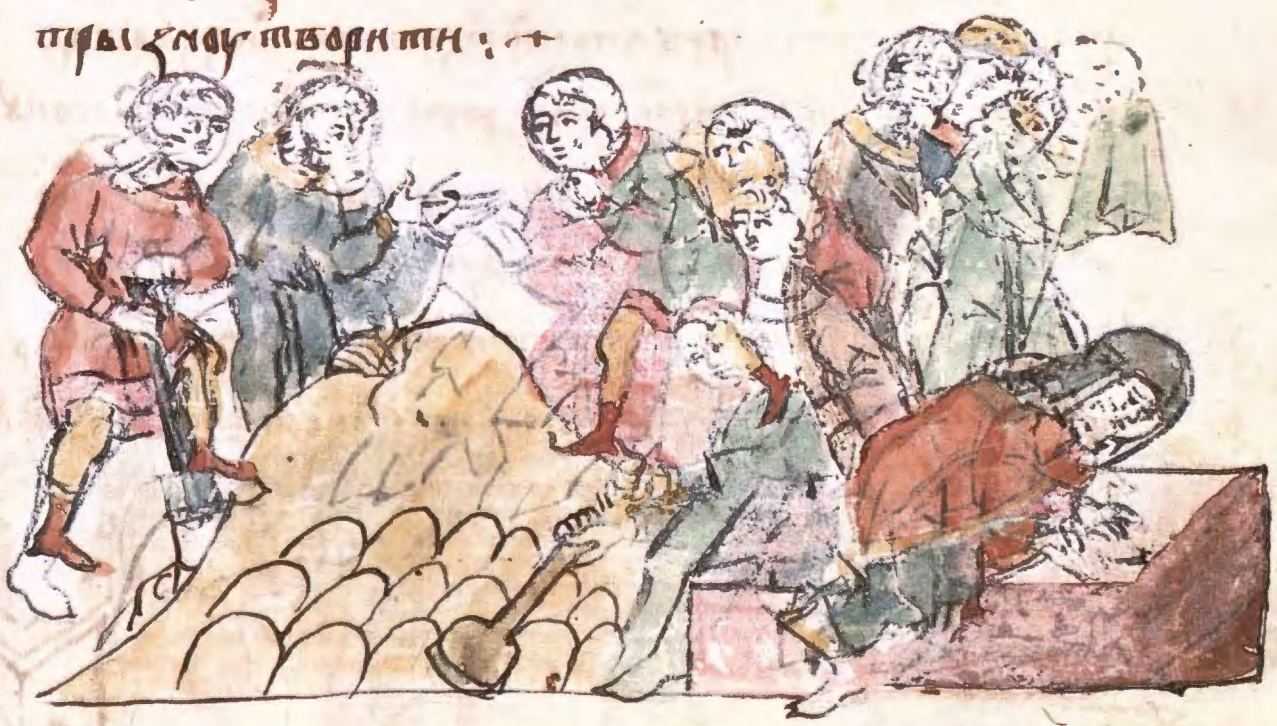 тры ємоу творити :·+